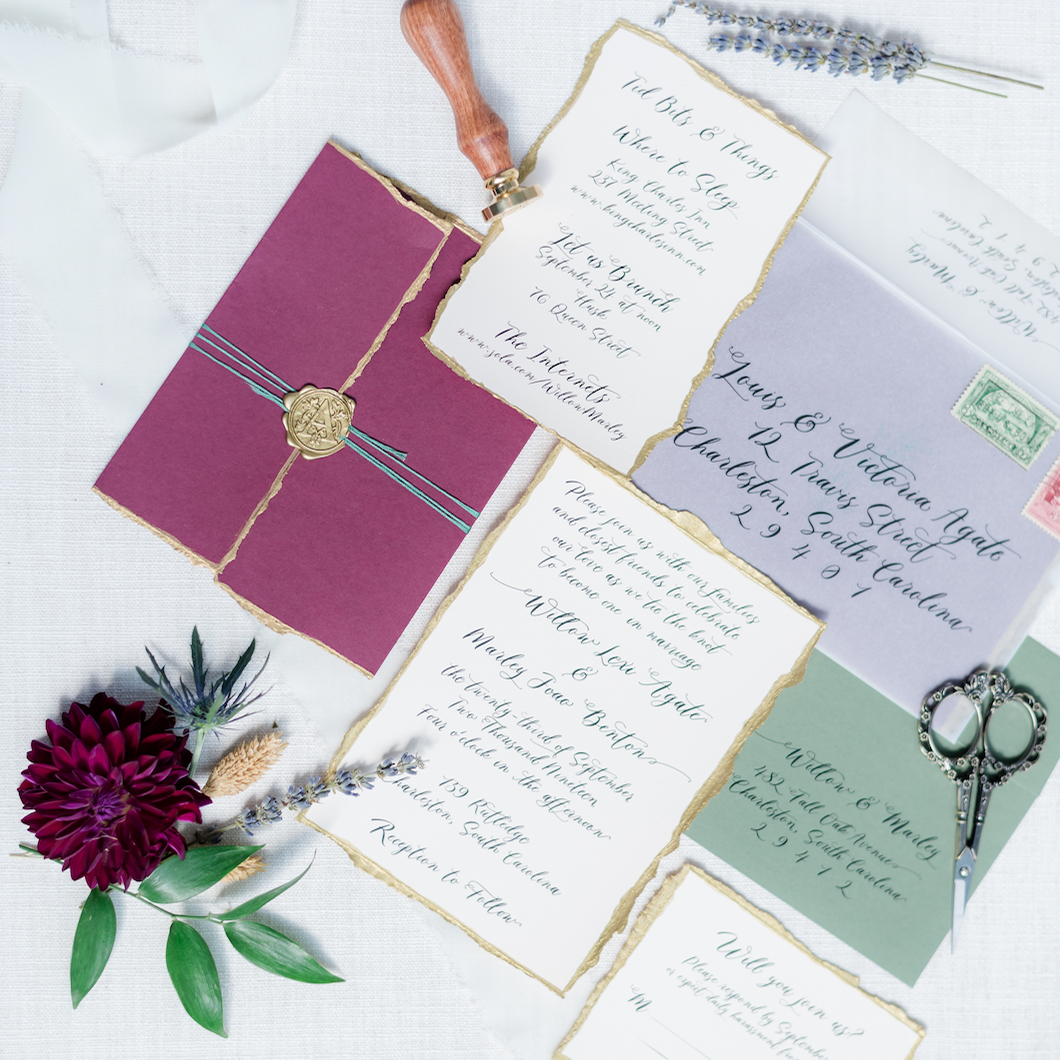 Tid Bits & Things
Where to Sleep
King Charles Inn
237 Meeting Street
www.kingcharlesinn.com
Let us Brunch
September 24 at noon
Husk
76 Queen Street
The Internets
www.zola.com/WillowMarley
Louis & Victoria Agato
12 Travis Street
Charleston, South Carolina
2 9 4 0 7
Please join us with our families
and closest friends to celebrate
our love as we tie the knot
to become one in marriage
Willow Lexi Agato
&
Marley Joao Benton
the twenty-third of September
Two Thousand Nineteen
Four o'clock in the afternoon
139 Rutledge
Charleston, South Carolina
Reception to Follow
Willow & Marley
482 Fall Oak Avenue
Charleston, South Carolina
2 9 4 4 2
Will you join us?
Please respond by September
or expect daily harassment
M
A